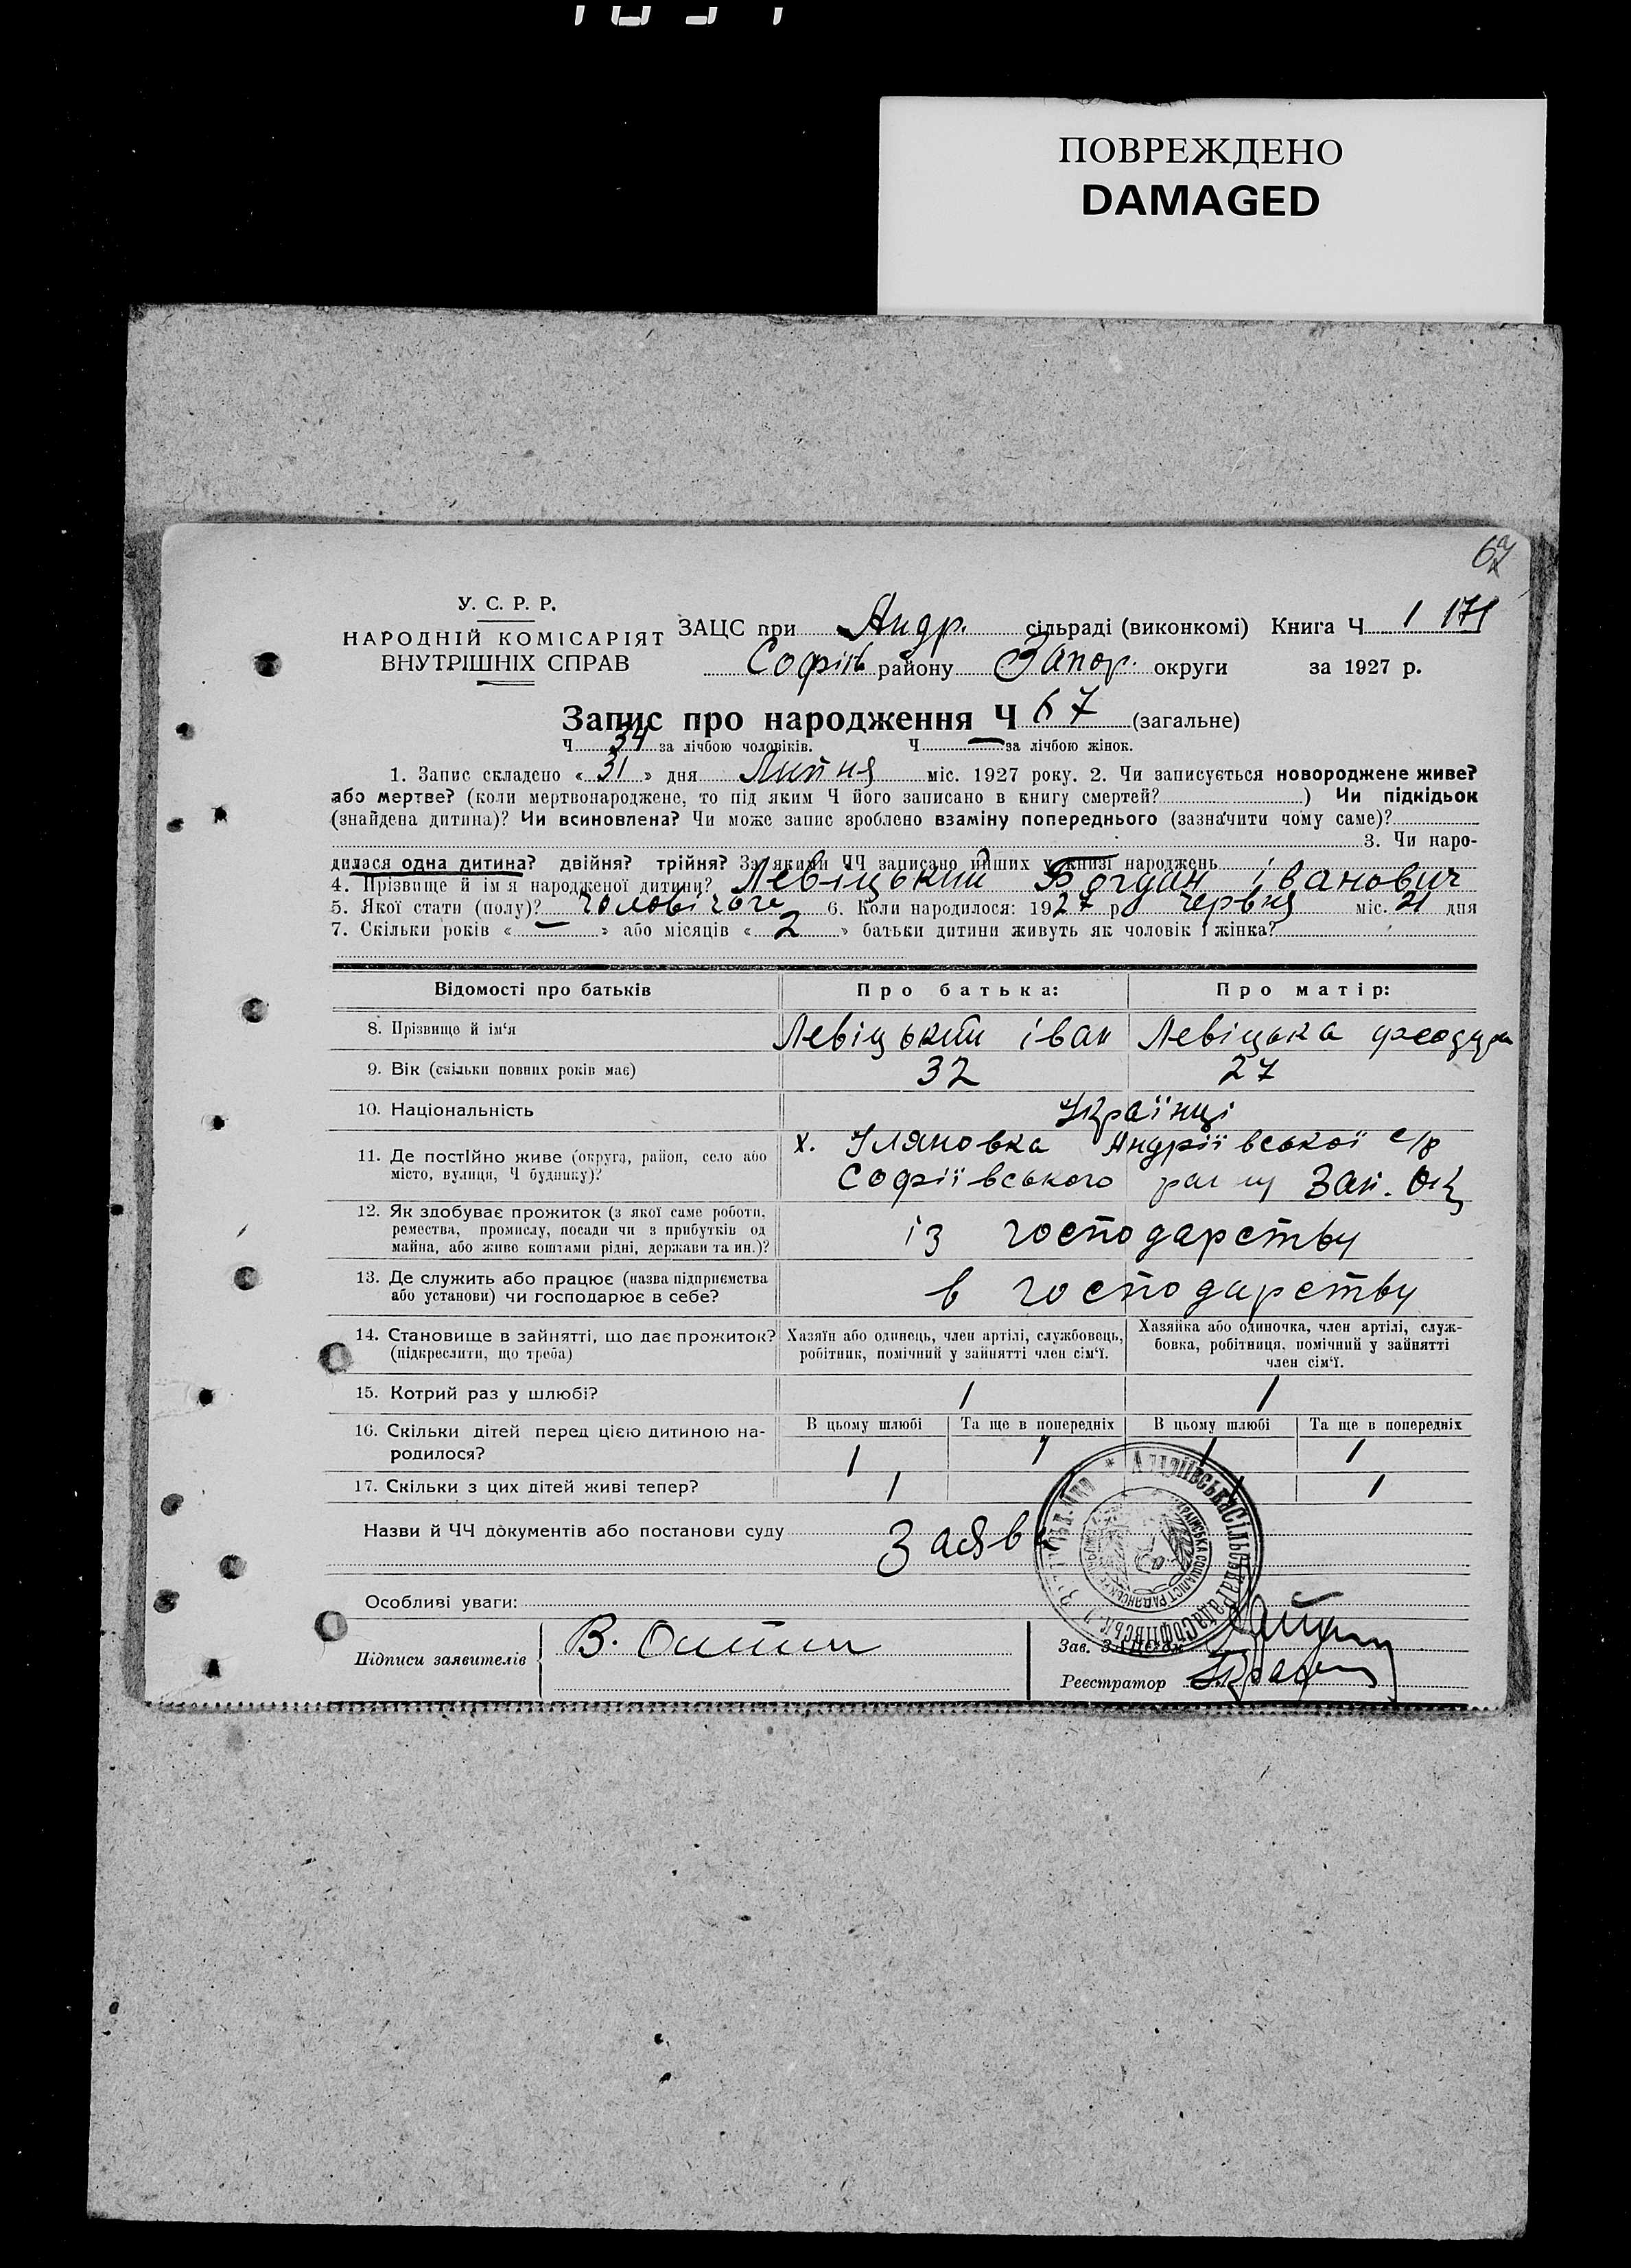 ПОВРЕЖДЕНО
DAMAGED
67
У. С. Р. Р.
НАРОДНІЙ КОМІСАРІЯТ
ВНУТРІШНІХ СПРАВ
ЗАЦС при Андр. сільраді (виконкомі) Книга Ч 1 171
Софіїв району Запор. округи за 1927 р.
Запис про народження Ч 67 (загальне)
Ч 34 за лічбою чоловіків. Ч — за лічбою жінок.
1. Запис складено « 31 » дня Липня міс. 1927 року. 2. Чи записується новороджене живе?
або мертве? (коли мертвонароджене, то під яким Ч його записано в книгу смертей? ) Чи підкідьок
(знайдена дитина)? Чи всиновлена? Чи може запис зроблено взаміну попереднього (зазначити чому саме)?
3. Чи наро-
дилася одна дитина? двійня? трійня? За якими ЧЧ записано инших у книзі народжень
4. Прізвище й ім'я народженої дитини? Левіцький Богдан іванович
5. Якої стати (полу)? чоловічого 6. Коли народилося: 1927 р червня міс. 21 дня
7. Скільки років « — » або місяців « 2 » батьки дитини живуть як чоловік і жінка?
Відомості про батьків Про батька: Про матір:
8. Прізвище й ім'я Левіцький іван Левіцька
9. Вік (скільки повних років має) 32 27
10. Національність Українці
11. Де постІйно живе (округа, район, село або х. Уляновка Андріївської с/р
місто, вулиця, Ч будинку)? Софіївського Зап. Окр
12. Як здобуває прожиток (з якої саме роботи,
ремества, промислу, посади чи з прибутків од
майна, або живе коштами рідні, держави та ин.)? із господарству
13. Де служить або працює (назва підприємства
або установи) чи господарює в себе? в господарству
14. Становище в зайнятті, що дає прожиток? Хазяїн або одинець, член артілі, службовець, Хазяйка або одиночка, член артілі, служ-
(підкреслити, що треба) робітник, помічний у зайнятті член сім'ї. бовка, робітниця, помічний у зайнятті
член сім'ї.
15. Котрий раз у шлюбі? 1 1
16. Скільки дітей перед цією дитиною на- В цьому шлюбі Та ще в попередніх В цьому шлюбі Та ще в попередніх
родилося? 1 1 1 1
17. Скільки з цих дітей живі тепер? 1 1 1
Назви й ЧЧ документів або постанови суду Заява
Особливі уваги:
Підписи заявителів В.
Зав. ЗАЦС'ом
Реєстратор